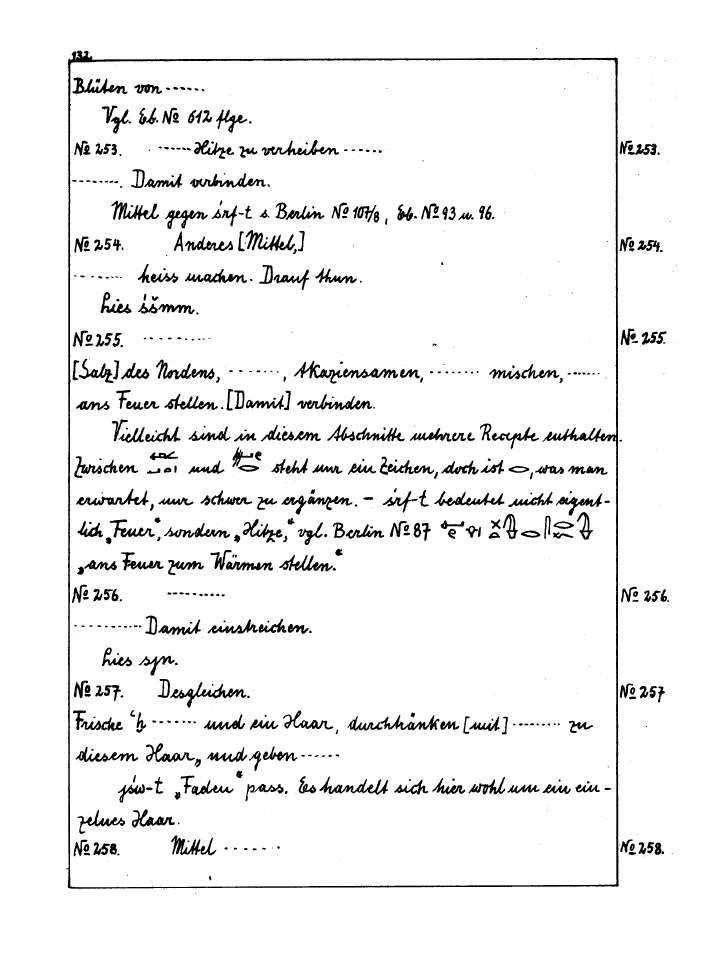 132.
Blüten von ------
Vgl. Eb. No 612 flge.
No 253. ------ Hitze zu vertreiben ------ No 253.
--------. Damit verbinden.
Mittel gegen śrf-t s. Berlin No 107/8, Eb. No 93 u. 96.
No 254. Anderes [Mittel,] No 254.
-------- heiss machen. Drauf thun.
Lies śšmm.
No 255. ---------- No 255.
[Salz] des Nordens, -------, Akaziensamen, -------- mischen, ------
ans Feuer stellen. [Damit] verbinden.
Vielleicht sind in diesem Abschnitte mehrere Recepte enthalten.
Zwischen und steht nur ein Zeichen, doch ist 𓂋, was man
erwartet, nur schwer zu ergänzen. – śrf-t bedeutet nicht eigent-
lich „Feuer“, sondern „Hitze,“ vgl. Berlin No 87
„ans Feuer zum Wärmen stellen.“
No 256. ---------- No 256.
----------- Damit einstreichen.
Lies sjn.
No 257. Desgleichen. No 257
Frische ꜥḫ -------- und ein Haar, durchtränken [mit] --------- zu
diesem Haar„ und geben ------
jśw-t „Faden“ pass. Es handelt sich hier wohl um ein ein-
zelnes Haar.
No 258. Mittel ------- No 258.